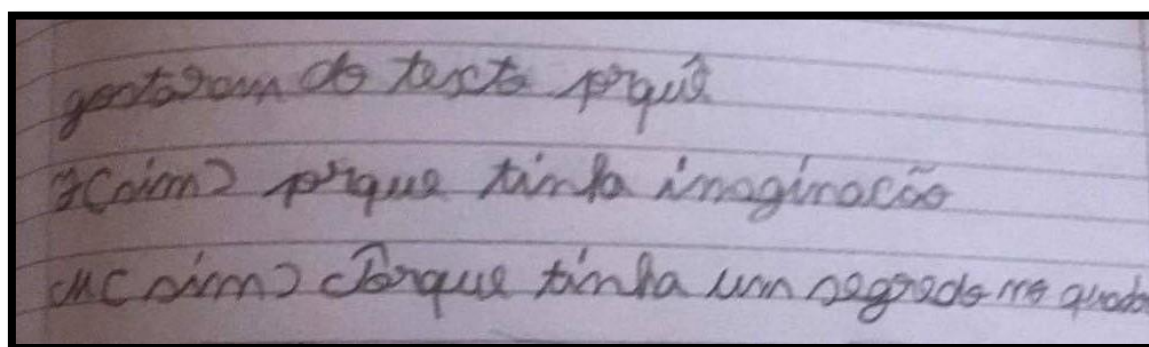 gostaram do texto porquê
J(sim) porque tinha imaginacão
M(sim) Porque tinha um segredo no quadro